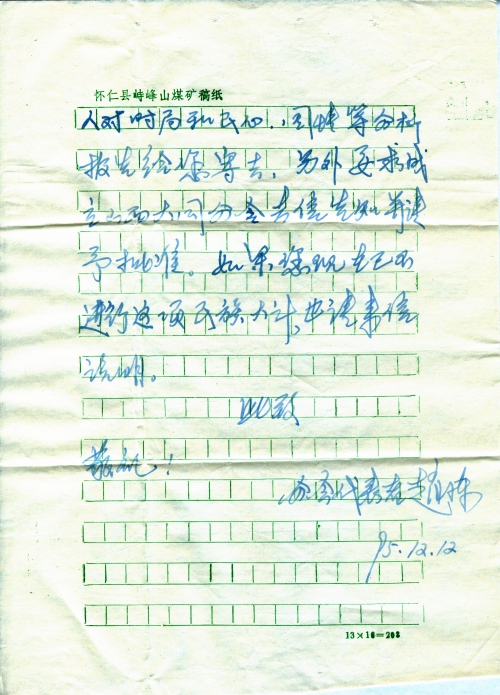 怀仁县峙峰山煤矿稿纸
人对时局和民心、同性等分析
报告给您寄去，另外要求成
立山西大同分会去信告知并请
予批准。如果您现在已不
进行这项民族大计，也请来信
说明。
此致
敬礼！
95.12.12
13×16=208